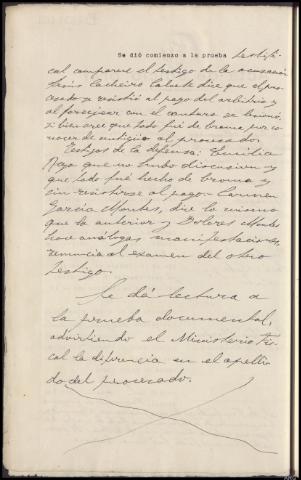 Se dió comienzo a la prueba testifi-
cal comparece el testigo de la acusación
Cacheiro dice que el pro-
cesado se resistió al pago del arbitrio y
al forcejear con el
si bien cree que todo fué de broma, por co-
nocer de antiguo al procesado.
Testigos de la defensa: Emilia
Rajo que no hubo discusión y
que todo fué hecho de broma y
sin resistirse al pago. Carmen
García Montes, dice lo mismo
que la anterior y Dolores Montes
hace análogas manifestaciones,
renuncia al examen del otro
testigo.
Se dá lectura a
la prueba documental,
advirtiendo el Ministerio Fis-
cal la diferencia en el apelli-
do del procesado.